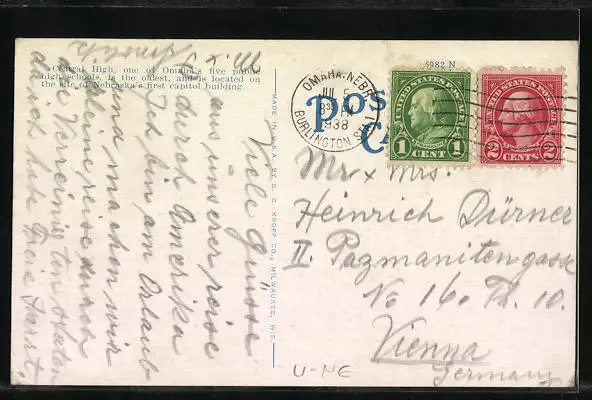 Central High, one of Omaha's five public
high schools, is the oldest, and is located on
the site of Nebraska's first capitol building.
MADE IN U.S.A. BY E. C. KROPP CO., MILWAUKEE, WIS.
5982 N
POS
CA
OMAHA, NEBR.
JUL 5
8 30 PM
1938
BURLINGTON STA.
UNITED STATES POSTAGE
1 CENT 1
UNITED STATES POSTAGE
2 CENTS 2
Mr & Mrs.
Heinrich Dürner
II. Pazmanitengasse
No 16. Th. 10.
Vienna
Germany
U-NE
Viele Grüsse
aus unserer reise
durch Amerika
Ich bin am Urlaub
und machen wir
eine reise durch
die Vereinigten Staaten